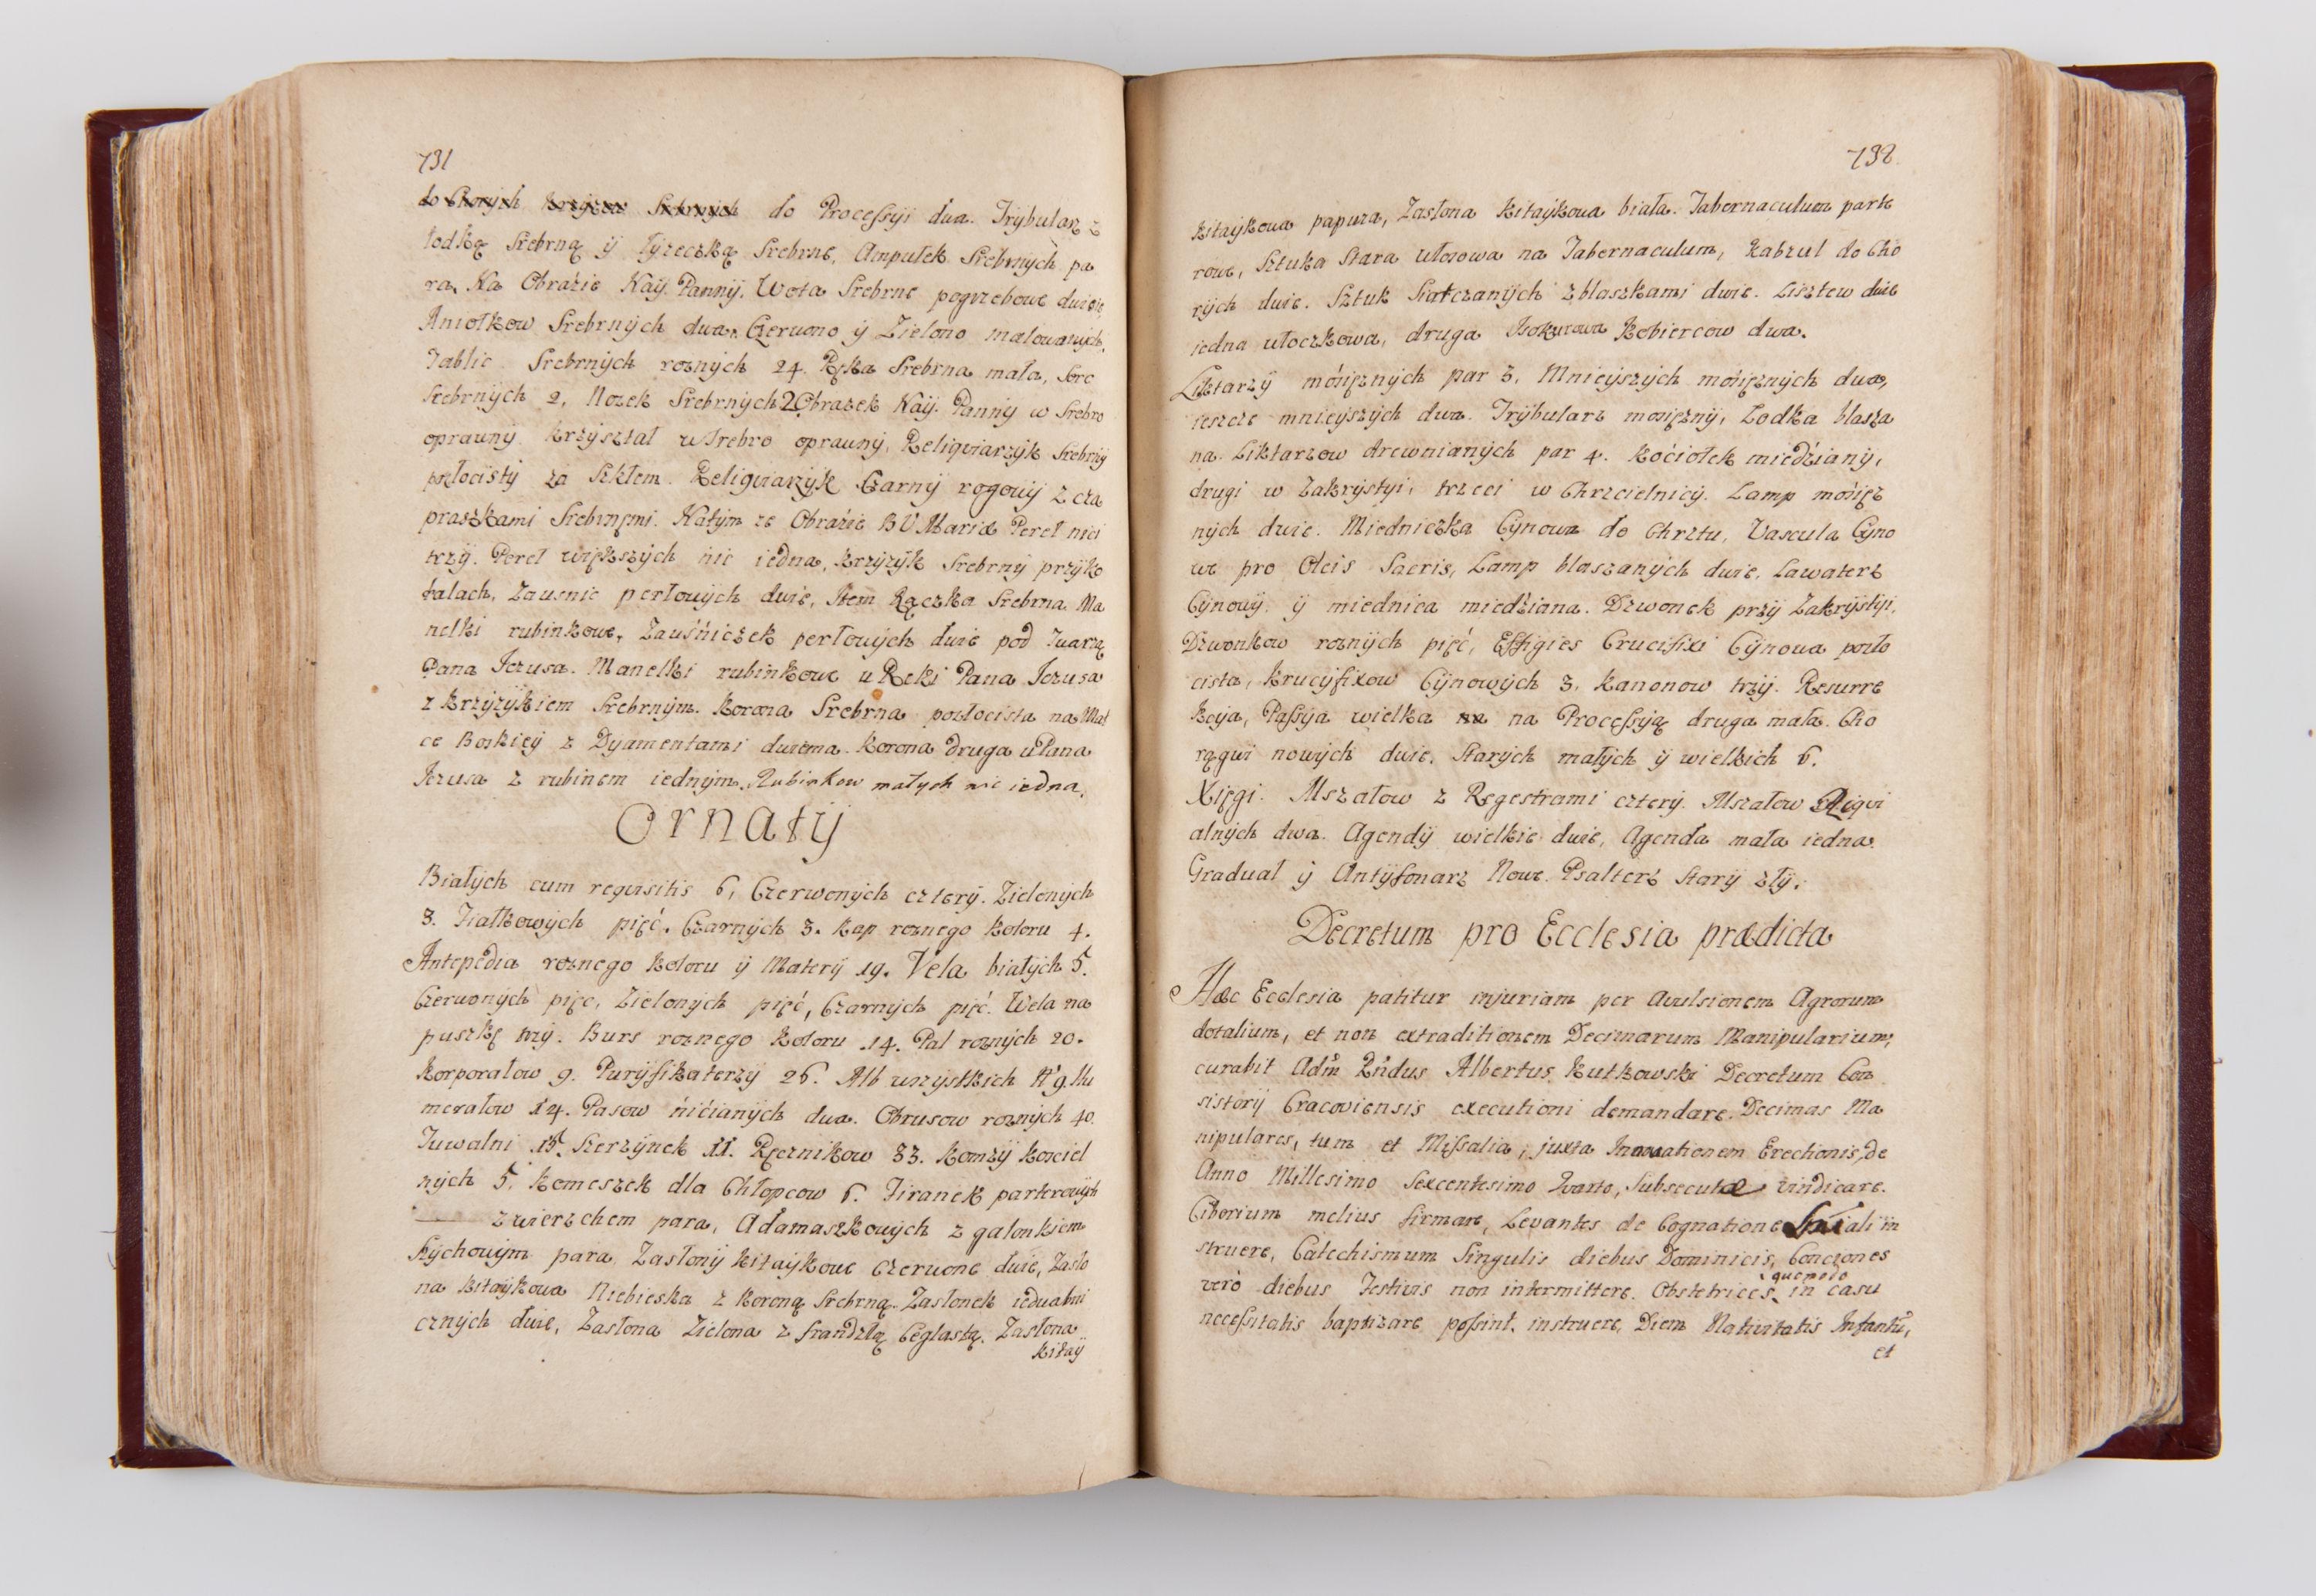 731
do Chorych krzyzow Srebrnych do Processyi dwa. Trÿbularz z
łodką Srebrną ÿ łyzeczką Srebrne, Ampułek Srebrnÿch pa
ra, Na Obraźie Naÿ. Pannÿ. Wota Srebrne pogrzebowe dwie
Aniołkow Srebrnÿch dwa. Czerwono ÿ Zielono malowanych,
Tablic Srebrnÿch roznÿch 24. Ręka Srebrna mała, Serc
Srebrnÿch 2, Nozek Srebrnÿch 2 Obrazek Naÿ. Pannÿ w Srebro
oprawnÿ Krzÿształ w Srebro oprawnÿ, Religwiarzÿk Srebrnÿ
pozłocistÿ za Szkłem. Religwiarzÿk Czarnÿ rogowÿ z cza
praszkami Srebrnemi. Natÿm ze Obraźie B V Mariæ Pereł nici
trzÿ. Pereł większÿch nic iedna, krzyzÿk Srebrnÿ przÿ ko
ralach, Zausnic perłowÿch dwie, Item Rączka Srebrna Ma
nelki rubinkowe, Zauśniczek perłowÿch dwie pod Twarzą
Pana Jezusa. Manelki rubinkowe u Reki Pana Jezusa
z krzÿzÿkiem Srebrnÿm. Korona Srebrna pozłocista na Mat
ce Boskieÿ z Dyamentami dwiema. Korona druga u Pana
Jezusa z rubinem iednÿm. Rubinkow małych nic iedna.
Ornatÿ
Białÿch cum requisitis 6, Czerwonych cztery. Zielonÿch
3. Fiałkowÿch pięć. Czarnÿch 3. Kap roznego koloru 4.
Antepedia roznego koloru ÿ Materÿ 19. Vela białÿch 5.
Czerwonÿch pięc, Zielonÿch pięć, Czarnych pięć. Wela na
puszkę trzÿ. Burs roznego koloru 14. Pal roznÿch 20.
Korporałow 9. Purÿfikaterzÿ 26. Alb wszystkich N 9. Hu
merałow 14. Pasow nićianÿch dwa. Obrusow roznÿch 40.
Tuwalni 15. Szerzÿnek 11. Ręcznikow 33. Komzÿ kosciel
nÿch 5. Komeszek dla Chłopcow 6. Firanek parterowÿch
z wierzchem para, Adamaszkowÿch z galonkiem
Szÿchowÿm para Zasłonÿ kitaÿkowe czerwone dwie, Zasło
na kitaÿkowa Niebieska z koroną Srebrną. Zaslonek iedwabni
cznÿch dwie, Zasłona Zielona z frandzlą Ceglastą. Zasłona
kitaÿ
732
kitaÿkowa papuza, Zasłona kitaÿkowa biała. Tabernaculum parte
rowe, Sztuka Stara utorowa na Tabernaculum, kabzul do Cho
rÿch dwie. Sztuk Siatczanÿch z blaszkami dwie. Lisztew dwie
iedna włoczkowa, druga Kobiercow dwa.
Liktarzÿ mósięznÿch par 3. Mnieÿszÿch mosięznÿch dwa,
ieszcze mnieyszych dwa. Trÿbularz mosięznÿ, Łodka blasza
na. Liktarzow drewnianÿch par 4. Kociołek miedźianÿ,
drugi w Zakrÿstÿi, trzeci w Chrzcielnicÿ. Lamp mosięz
nÿch dwie. Miedniczka Cÿnowa do Chrztu, Vascula Cÿno
we pro Oleis Sacris, Lamp blaszanÿch dwie, Lawaterz
Cÿnowÿ ÿ miednica miedźiana. Dzwonek przÿ Zakrÿstÿi.
Dzwonkow roznÿch pięć, Effigies Crucifixi Cÿnowa pozło
cista, Krucÿfixow Cÿnowÿch 3. Kanonow trzÿ. Resurre
kcÿa, Passÿa wielka na Processÿą druga mała. Cho
rągwi nowÿch dwie. Starÿch małÿch ÿ wielkich 6.
Xięgi. Mszałow z Regestrami czterÿ. Mszałow Reqvi
alnÿch dwa. Agendÿ wielkie dwie, Agenda mała iedna.
Graduał ÿ Antÿfonarz Nowe. Psałterz Starÿ złÿ.
Decretum pro Ecclesia prædicta
Hæc Ecclesia patitur injuriam per Avulsionem Agrorum
dotalium, et non extraditionem Decimarum Manipularium;
curabit Adm Rndus Albertus Rutkowski Decretum Con
sistorÿ Cracoviensis executioni demandare. Decimas Ma
nipulares, tum et Missalia, juxta Innovationem Erectionis, de
Anno Millesimo Sexcentesimo Quarto, Subsecutæ vindicare.
Ciborium melius firmare, Levantes de Cognatione Spirali in
struere, Catechismum Singulis diebus Dominicis, Conciones
verò diebus Festivis non intermittere. Obstetrices, quomodo in casu
necessitatis baptizare possint, instruere, Diem Nativitatis Infantũ,
et